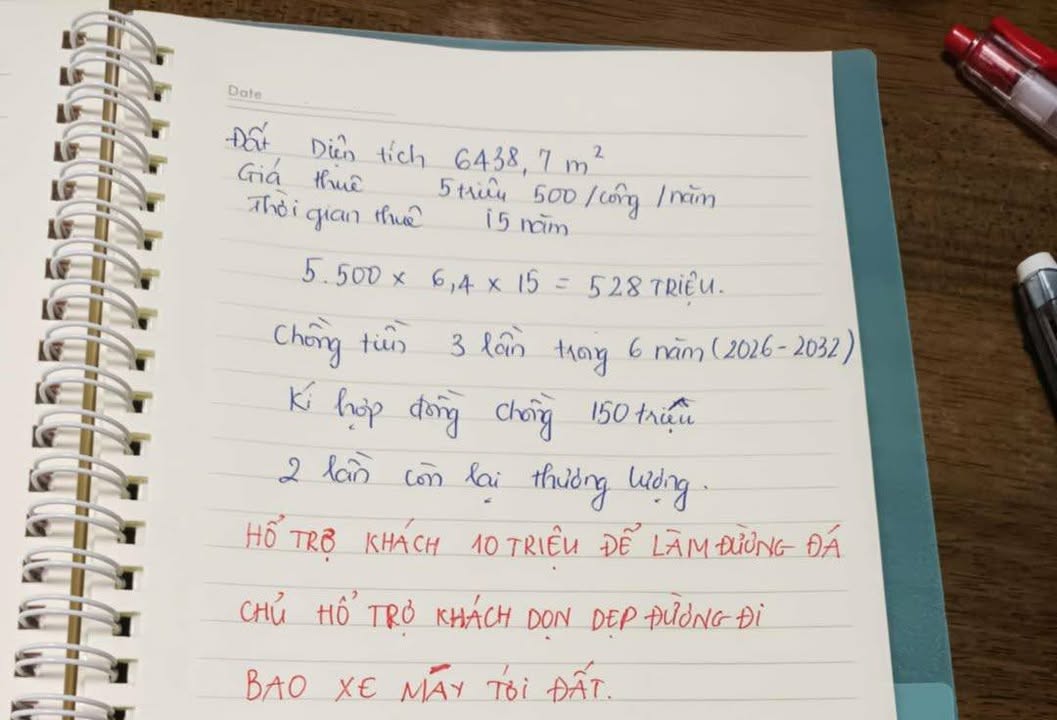 Date
Đất Diện tích 6438,7 m²
Giá thuê 5 triệu 500/công/năm
Thời gian thuê 15 năm
5.500 x 6,4 x 15 = 528 TRIỆU.
Chồng tiền 3 lần trong 6 năm (2026-2032)
Kí hợp đồng chồng 150 triệu
2 lần còn lại thương lượng.
HỔ TRỢ KHÁCH 10 TRIỆU ĐỂ LÀM ĐƯỜNG ĐÁ
CHỦ HỔ TRỢ KHÁCH DỌN DẸP ĐƯỜNG ĐI
BAO XE MÁY TỚI ĐẤT.